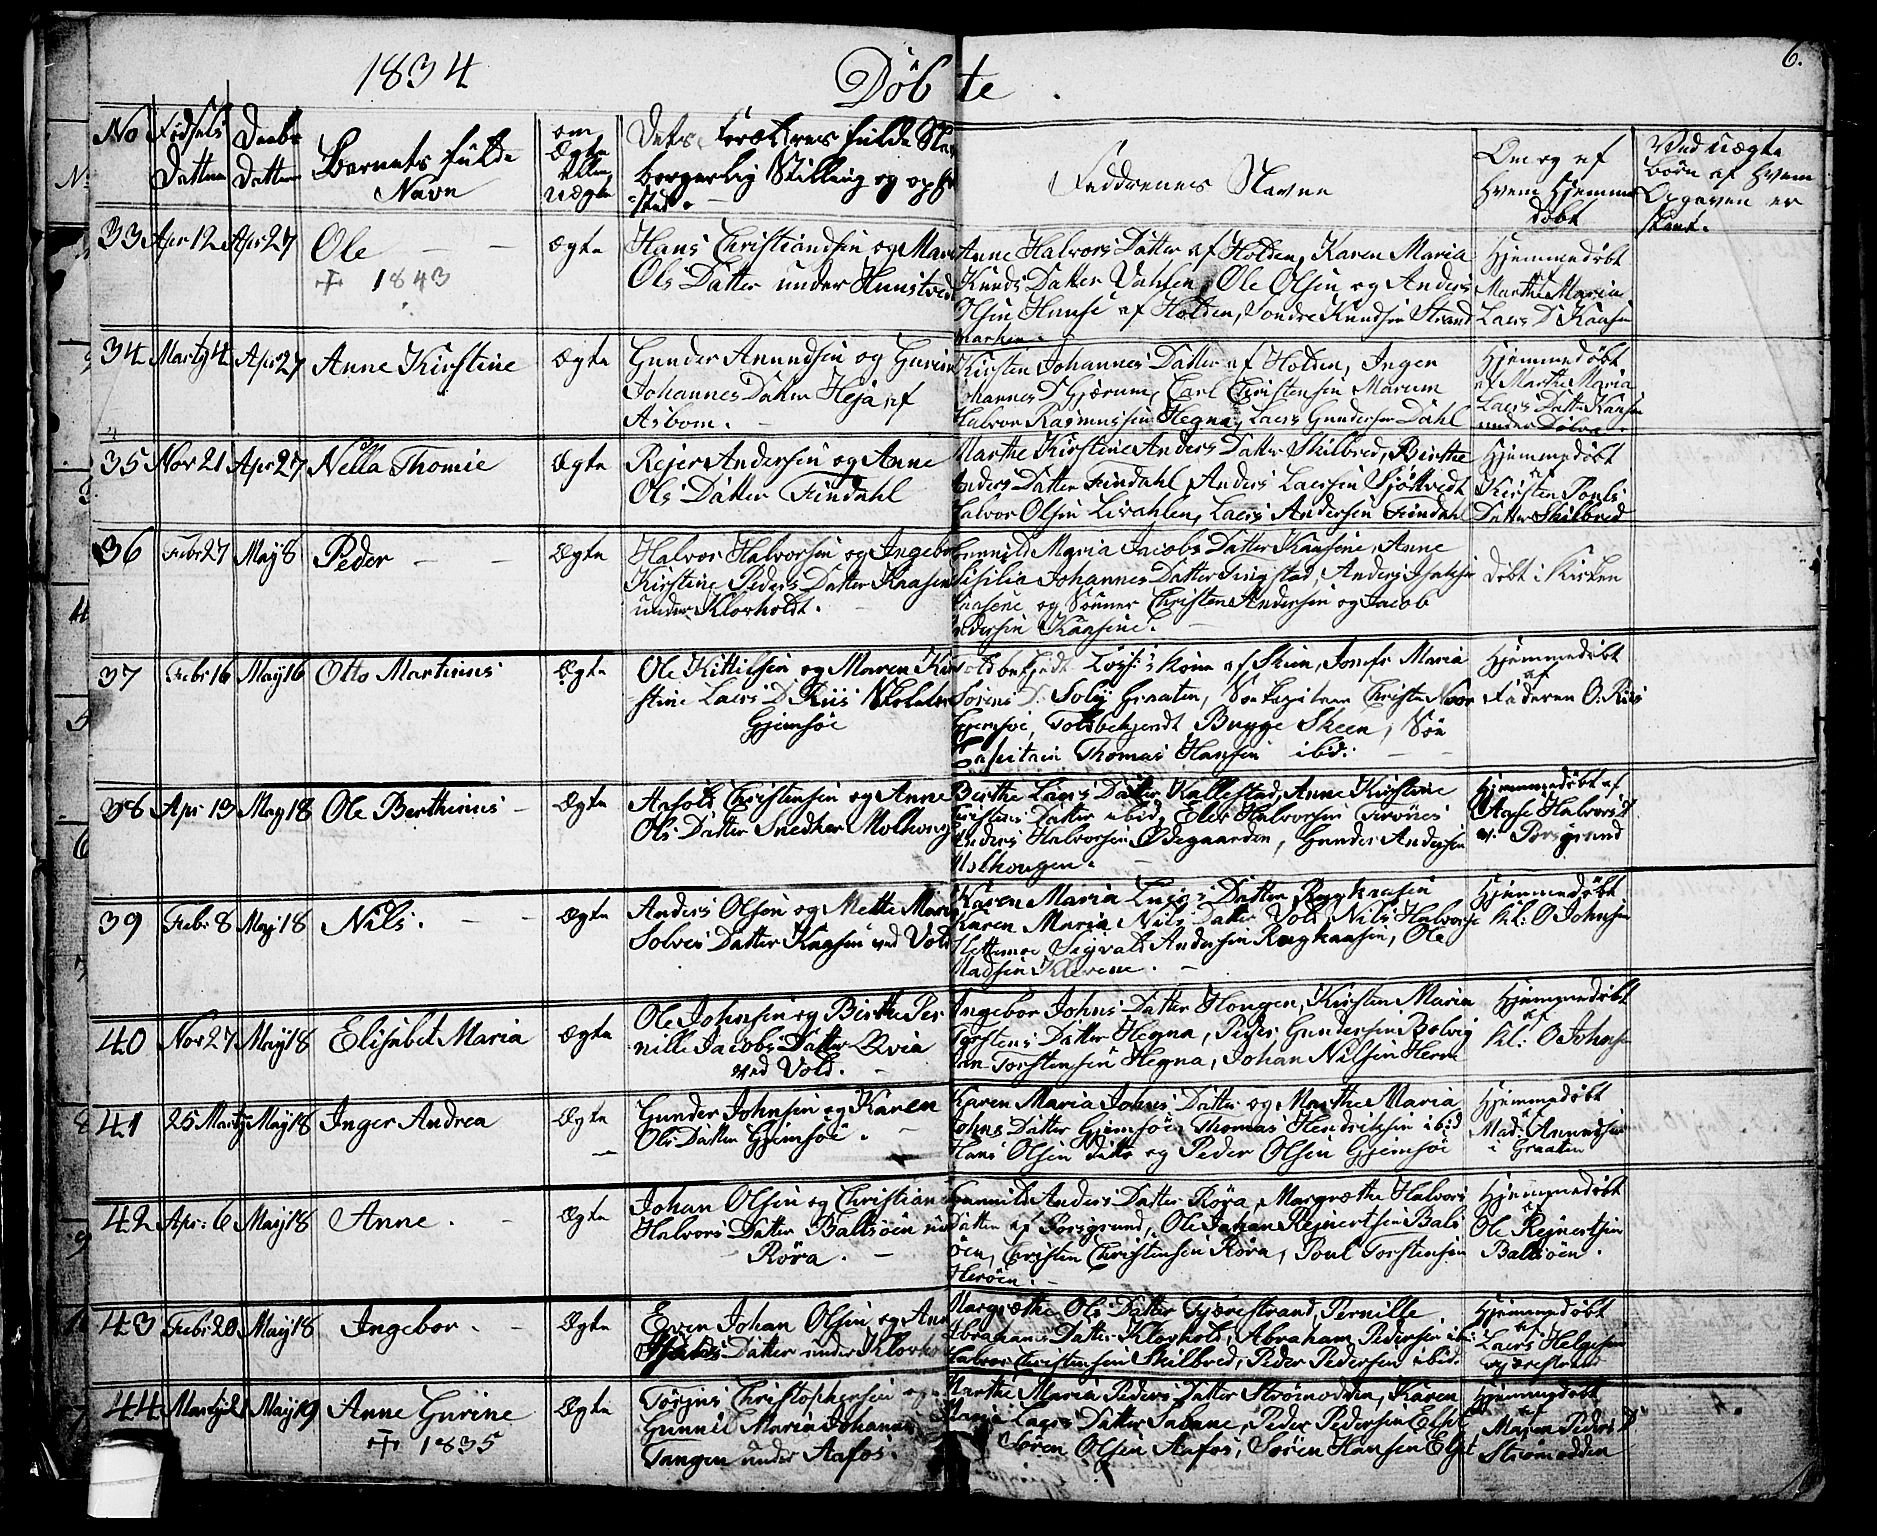 1834
Döbte
6.
No
Födsels Datum
Daabs Datum
Barnets fulde Navn
om Ægte eller uægte
Dets Forældres fulde
borgerlig Stilling og
Faddrenes Navne
Om og af hvem hjemme döbt
Ved uægte Börn af hvem Opgaven er skeet.
33 Apr 12 Apr 27 Ole
+ 1843
Ægte
Hans Christiandsen og
Ols Datter under
Anne Halvors Datter af Holden, Karen Maria
Knuds Datter Vahlen, Ole Olsen og Anders
Olsen af Holden, Sondre Knudsen Strand
Hjemmedöbt
af
Marthe Maria
Laers D Kaasen
34 Marty 4 Apr 27 Anne Kirstine
Ægte
Gunder Anundsen og
Johannes Datter Heja af
Asbom.
Kirsten Johannes Datter af Holden, Inger
Johannes D Gjærum, Carl Christensen Marum
Halvor Rasmussen Hegna, Laers Gundersen Dahl
Hjemmedöbt
af Marthe Maria
Laers Datter Kaasen
under
35 Nov 21 Apr 27 Nella Thomie
Ægte
Rejer Andersen og Anne
Ols Datter Findahl
Marthe Kirstine Anders Datter Skilbred, Birthe
Anders Datter Findahl, Anders Laersen
Halvor Olsen, Laers Andersen Findahl
Hjemmedöbt
af
Kirsten Pouls
Datter Skilbred
36 Febr 27 May 8 Peder
Ægte
Halvor Halvorsen og Ingebor
Kirstine Peders Datter Kaasene
under Klovholdt.
Gunnild Maria Jacobs Datter Kaasene, Anne
Sisilia Johannes Datter, Anders
Kaasene og Sönner Christen Andersen og Jacob
Pedersen Kaasene.
döbt i Kirken
37 Febr 16 May 16 Otto Martinus
Ægte
Ole Kittilsen og Maren
stine Laers D Riis
Gjemsöe
kone af Skien, Josefe Maria
Sörens D. Graaten, Christen
Gjemsöe, Toldbetjendt Brygge Skeen, Söe
Capitain Thomas Hansen ibid:
Hjemmedöbt
af
Faderen O: Riis
38 Apr 13 May 18 Ole Berthinus
Ægte
Christensen og Anne
Ols Datter Snedker
Birthe Laers Datter Kallestad, Anne Kirstine
Christens Datter ibid, Eler Halvorsen
Anders Halvorsen Ödegaarden, Gunder Andersen
Hjemmedöbt af
Aase Halvors D
v. Porsgrund
39 Febr 8 May 18 Nils.
Ægte
Anders Olsen og Mette Maria
Solves Datter Kaasen ved Vold
Karen Maria Laers Datter
Karen Maria Nils Datter Vold, Nils Halvorsen
Sigvald Andersen, Ole
Madsen
Hjemmedöbt
kl: O Johnsen
40 Nov 27 May 18 Elisabet Maria
Ægte
Ole Johnsen og Birthe Per
nille Jacobs Datter
ved Vold.
Ingebor Johns Datter Hougen, Kirsten Maria
Torstens Datter Hegna, Peder Gundersen Bolvig
Torstensen Hegna, Johan Nilsen
Hjemmedöbt
af
kl: O Johnsen
41 25 Marty May 18 Inger Andrea
Ægte
Gunder Johnsen og Karen
Ols Datter Gjemsöe.
Karen Maria Johns Datter og Marthe Maria
Johns Datter Gjemsöe, Thomas Hendriksen ibid
Hans Olsen ditto og Peder Olsen Gjemsöe
Hjemmedöbt
af
Mad: Anundsen
i Graaten
42 Apr: 6 May 18 Anne.
Ægte
Johan Olsen og Christian
Halvors Datter Baltsöen
Röra.
Gunnild Anders Datter Röra, Margrethe Halvors
Datter af Porsgrund, Ole Johan Rejnertsen Balt
söen, Christen Christensen Röra, Poul Torstensen
Heröen.
Hjemmedöbt
af
Ole Rejnertsen
Baltsöen.
43 Febr 20 May 18 Ingebor.
Ægte
Even Johan Olsen og
Datter under Klovholt
Margrethe Ols Datter Tjærestrand, Pernille
Abrahams Datter Klovholt, Abraham Pedersen ibi:
Halvor Christensen Skilbred, Peder Pedersen ibid.
Hjemmedöbt
af
Laers Helgesen
Tjærestrand
44 May 19 Anne Gurine
+ 1835
Ægte
Torjus Christophersen og
Gunnil Maria Johannes
Tangen under Aafos.
Marthe Maria Peders Datter Strömodden, Karen
Maria Laers Datter, Peder Pedersen
Sören Olsen Aafos, Sören Hansen
Hjemmedöbt
af
Maren Peders D
Strömodden